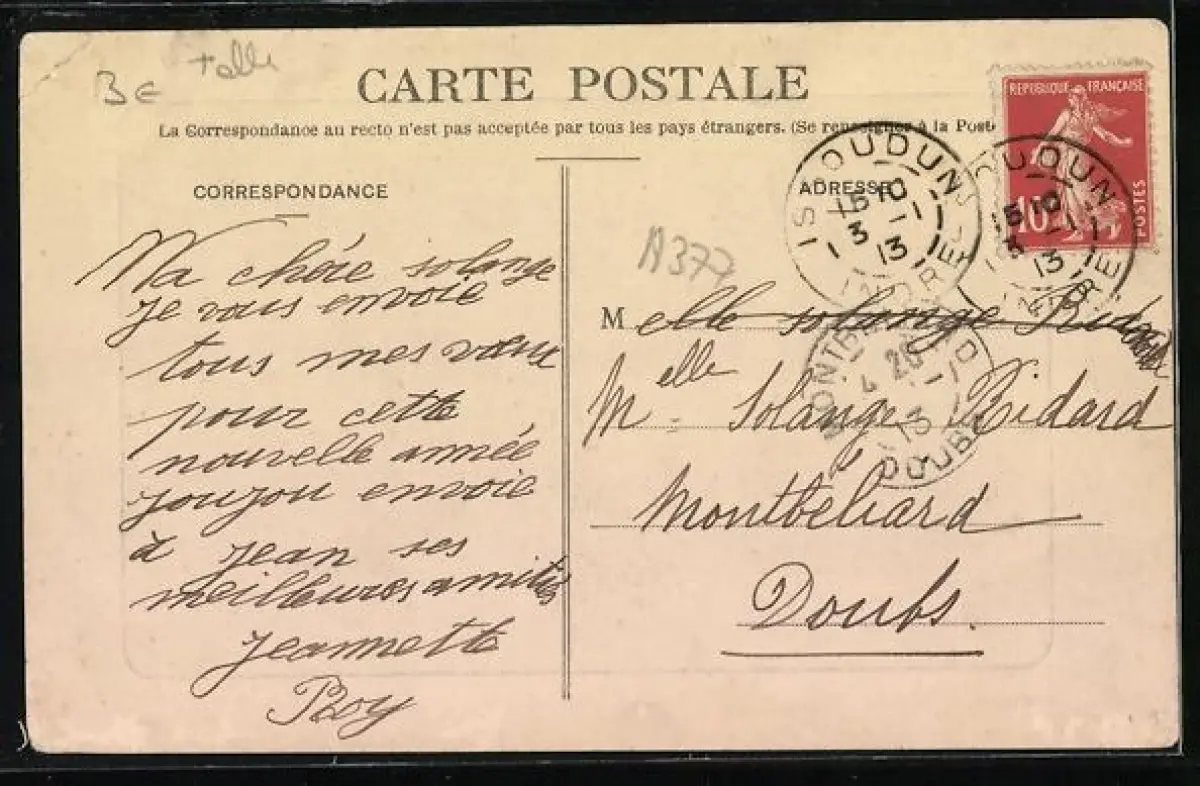 3€
CARTE POSTALE
La Correspondance au recto n'est pas acceptée par tous les pays étrangers. (Se renseigner à la Poste
CORRESPONDANCE
Ma chère solange
je vous envoie
tous mes vœux
pour cette
nouvelle année
joujou envoie
à jean ses
meilleures amitiés
jeannette
Roy
ADRESSE
A377
Melle solange Bidard
Melle Solange Bidard
Montbéliard
Doubs.
REPUBLIQUE FRANÇAISE
10
POSTES
ISSOUDUN
15 10
3 -1
13
INDRE
ISSOUDUN
15 10
3 -1
13
INDRE
4 20
-1
13
DOUBS